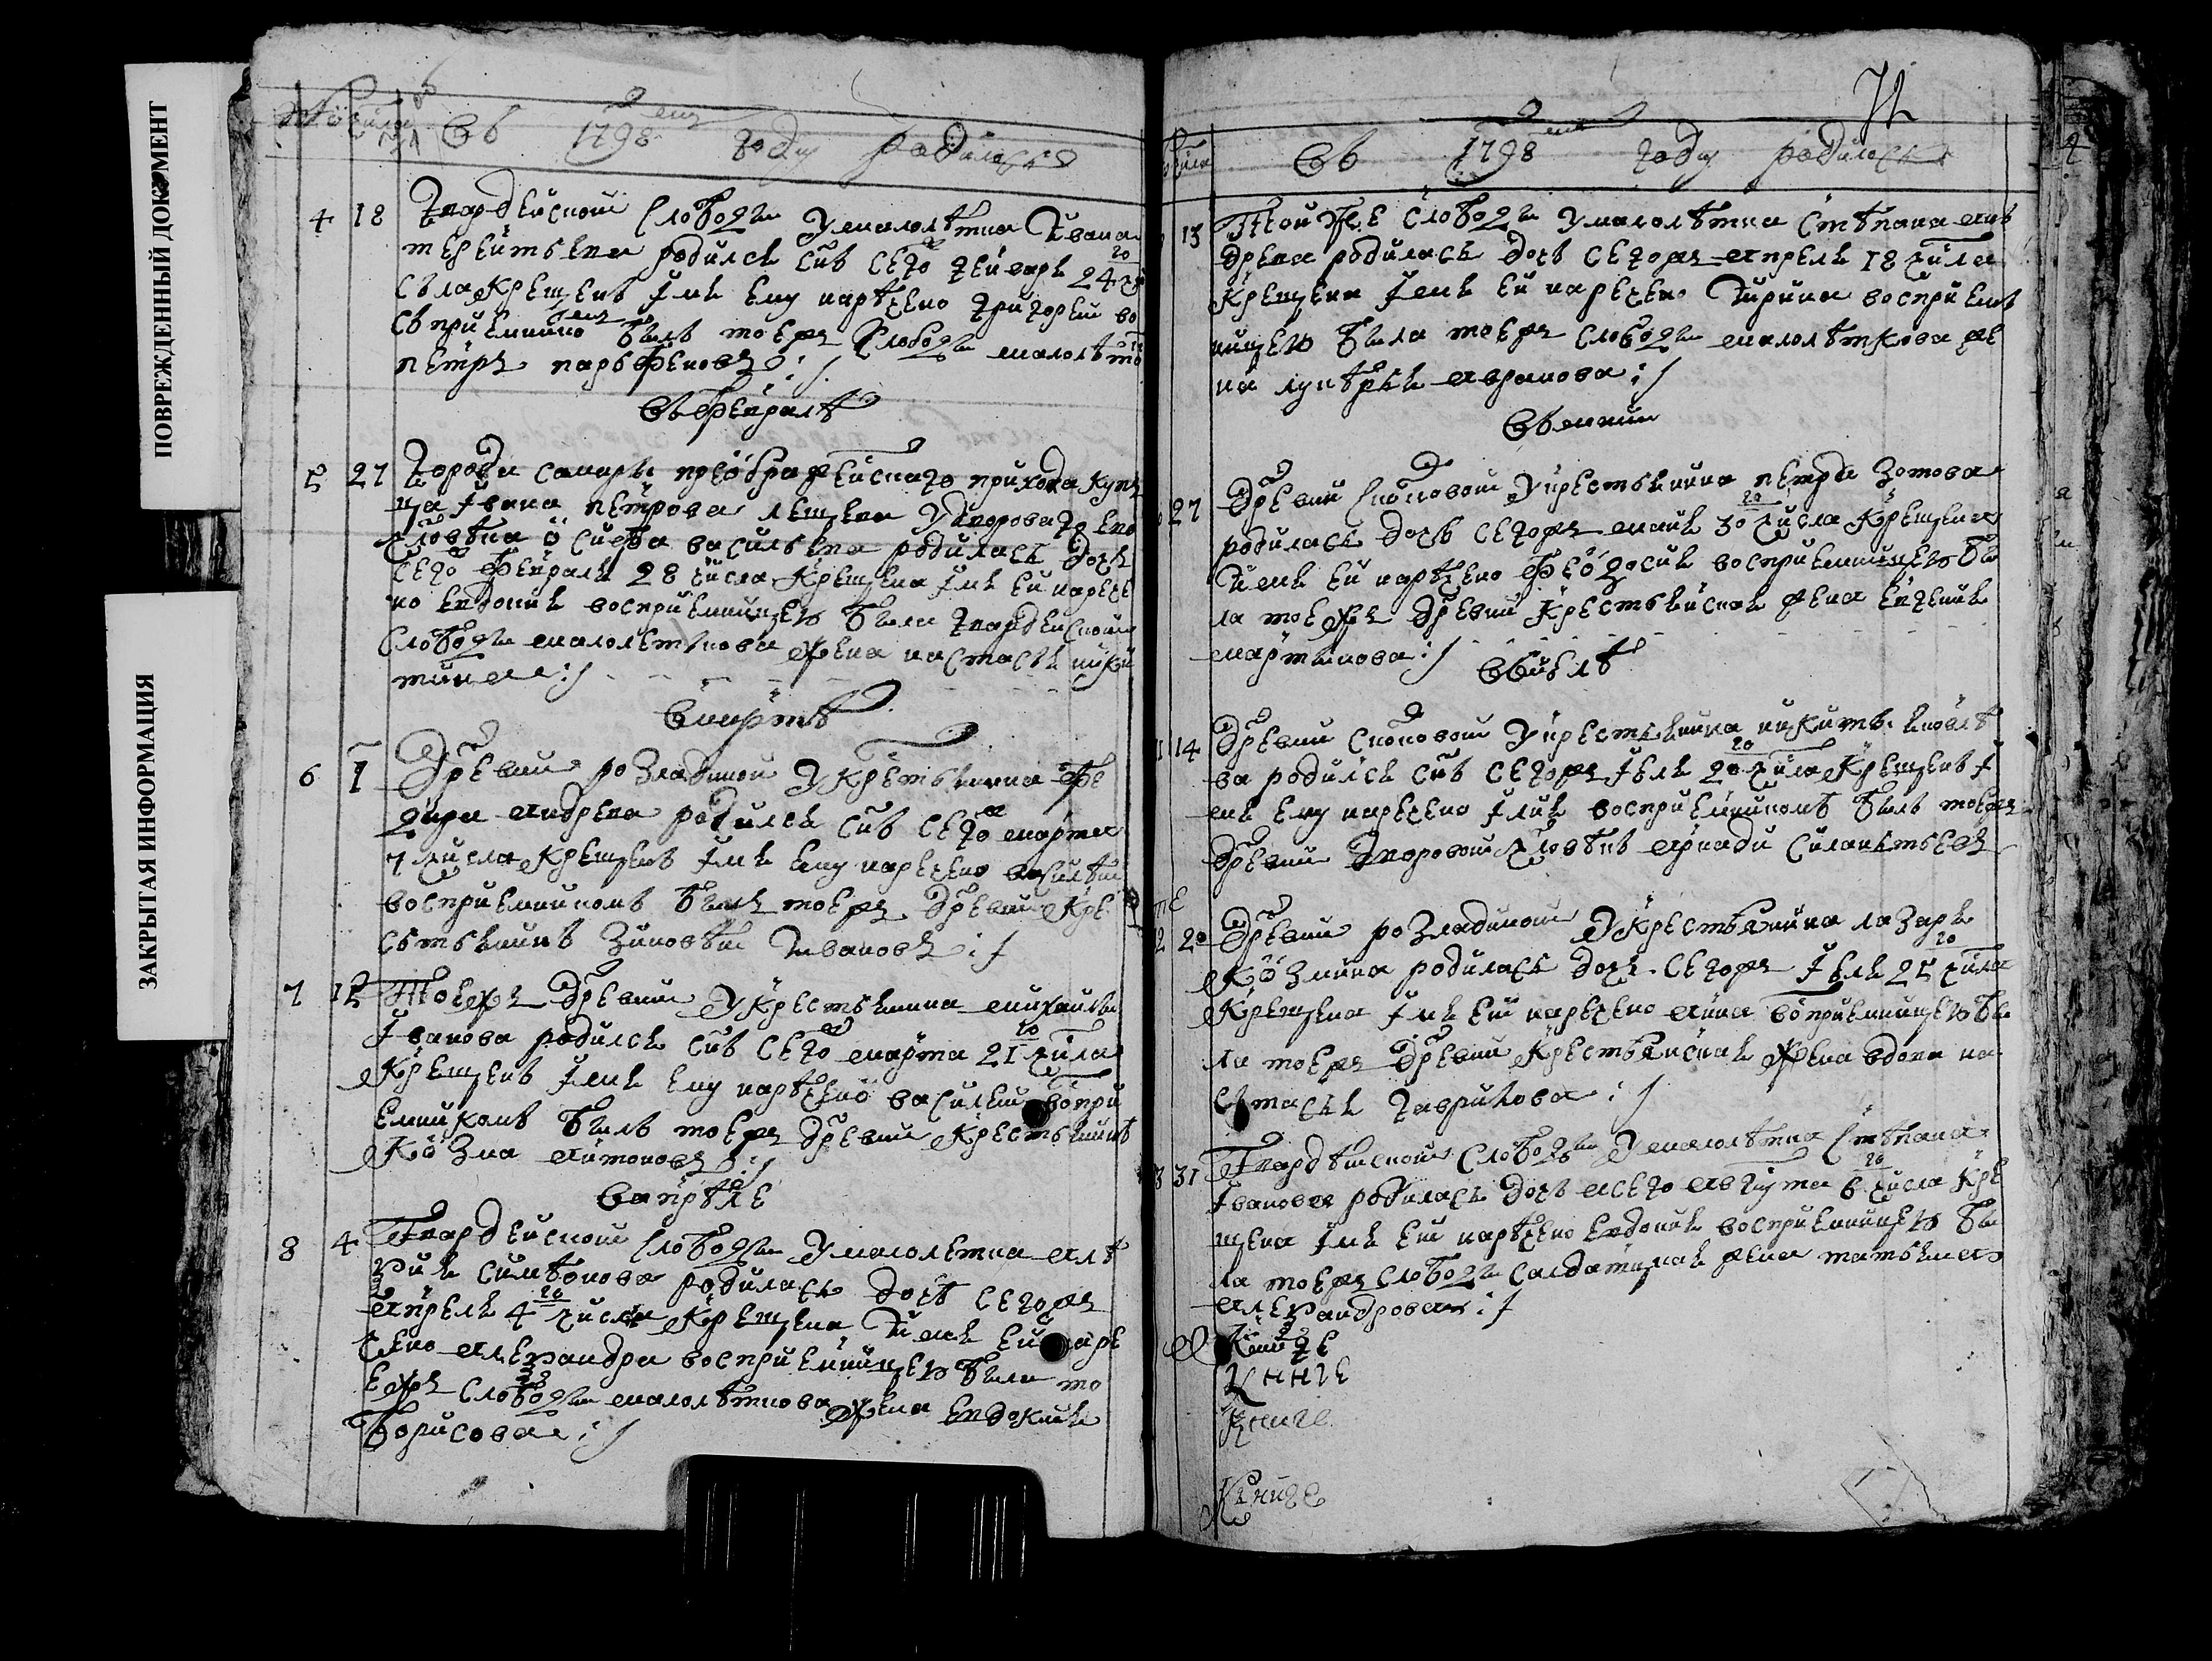 ПОВРЕЖДЕННЫЙ ДОКУМЕНТ
ЗАКРЫТАЯ ИНФОРМАЦИЯ
Въ 1798 году родилось
4 18 Гвардейской слободы у малолѣтка Ивана
родился снъ сего генваря 24 го
числа крещенъ имя ему наречено григореи во
сприемникомъ былъ тоежъ слободы малолѣток
петръ парфеновъ
Въ феврале
5 27 Города самары преображенскаго прихода куп
ца Ивана петрова у двороваго ево
человѣка осифа васильева родилась дочь
сего февраля 28 числа крещена имя еи нарече
но евдокия восприемницею была гвардейской
слободы малолеткова жена настасья ники
тина
В мартѣ
6 1 Древни розладиной у крестьянина фе
дора андрева родился снъ сего марта
7 числа крещенъ имя ему наречено василеи
восприемникомъ былъ тоежъ древни кре
стьянинъ зиновеи Ивановъ
7 15 Тоежъ древни у крестьянина михаилы
Иванова родился снъ сего марта 21 го числа
крещенъ имя ему наречено василеи воспри
емникомъ былъ тоежъ древни крестьянинъ
козма антоновъ
В апрѣле
8 4 Гвардейской слободы у малолетка алѣ
ксия симѣонова родилась дочь сегожъ
апреля 4 го числа крещена имя еи наре
чено александра восприемницею была то
ежъ слободы малолѣткова жена евдокия
борисова
72
числа Въ 1798 году родилось
13 Тои же слободы у малолѣтка стѣпана ан
древа родилась дочь сегожъ апреля 18 числа
крещена имя еи наречено Ирина восприем
ницею была тоежъ слободы малолѣткова же
на аврамова
Въ маии
27 Древни у крестьянина петра зотова
родилась дочь сегожъ майя 30 го числа крещена
имя еи наречено феодосия восприемницею бы
ла тоежъ древни крестьянская жена евгения
мартынова
В июлѣ
14 Древни у крестьянина никиты яковлѣ
ва родился снъ сегожъ июля 20 го числа крещенъ и
мя ему наречено илия восприемникомъ былъ тоежъ
древни дворовой человѣкъ аркади силантьевъ
20 Древни розладиной у крестьянина лазаря
козмина родилась дочь сегожъ июля 25 го числа
крещена имя еи наречено анна восприемницею бы
ла тоежъ древни крестьянская жена вдова на
стасья гаврилова
31 Гвардѣйской слободы у малолѣтка стѣпана
Иванова родилась дочь а сего августа 6 го числа кре
щена имя еи наречено евдокия восприемницею бы
ла тоежъ слободы салдатская жена татьяна
александрова
Книге
книге
книге
Книге